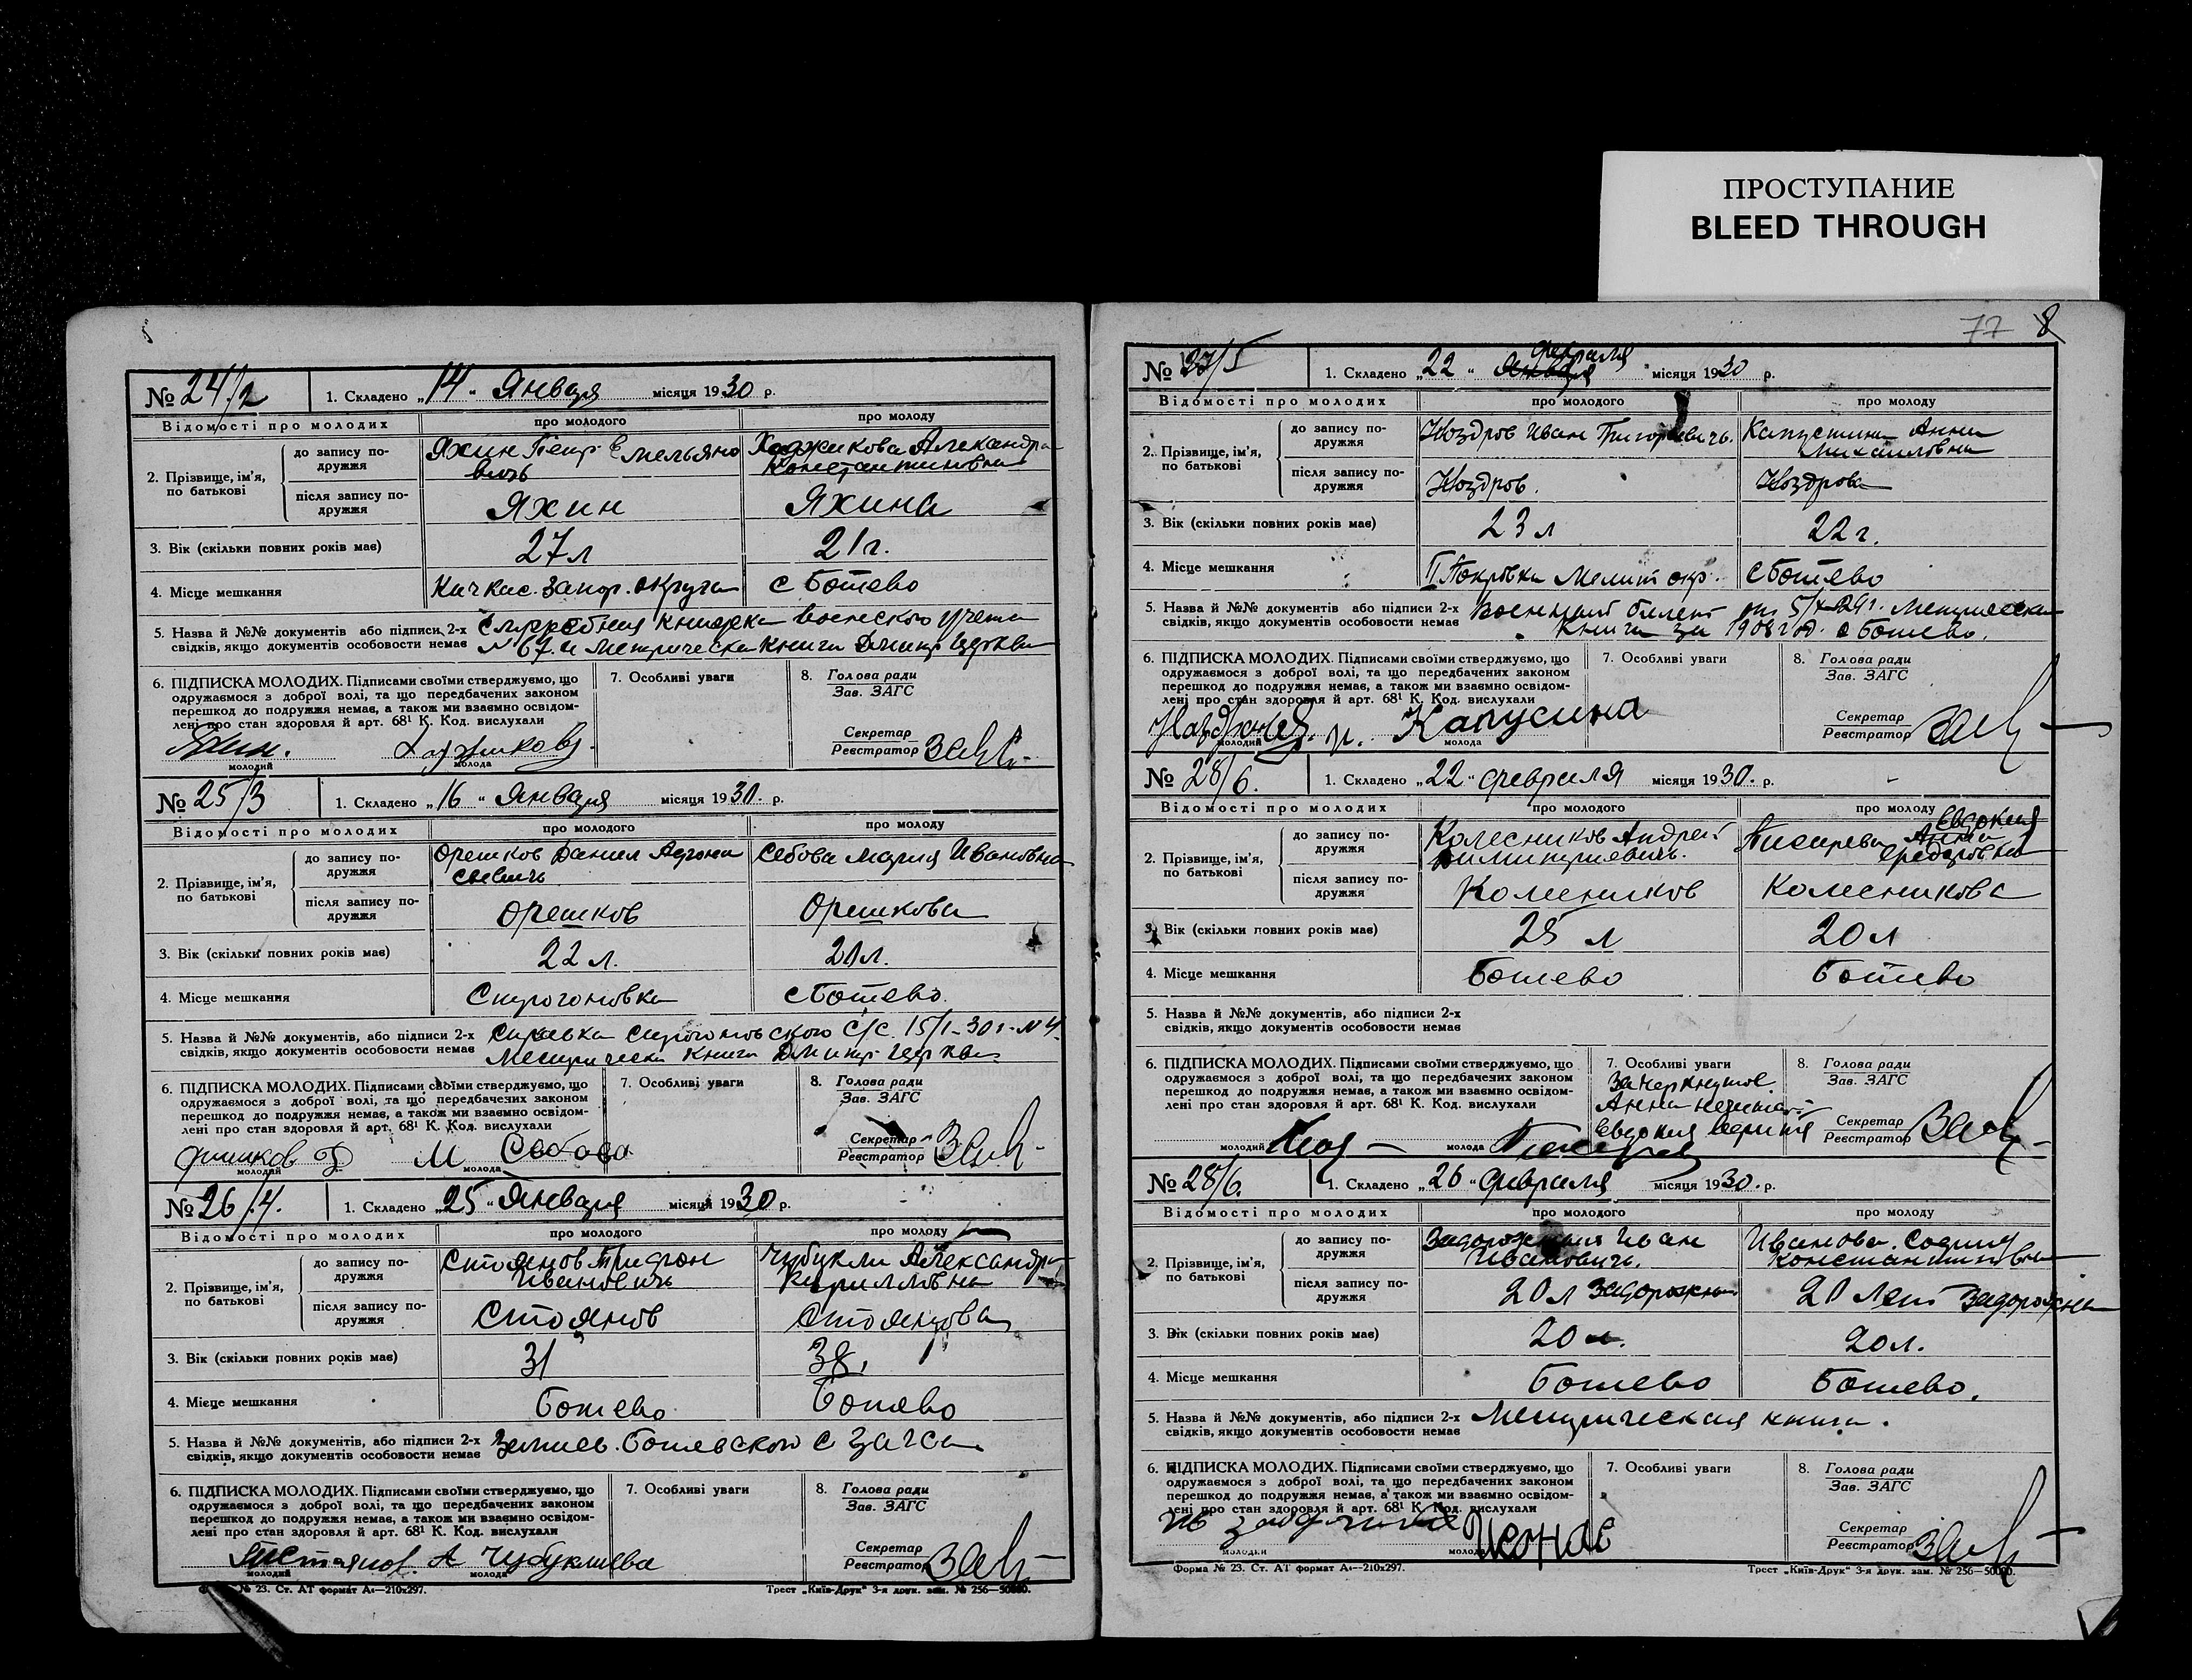 ПРОСТУПАНИЕ
BLEED THROUGH
№ 24/2 1. Складено „14“ Января місяця 1930 р.
Відомості про молодих про молодого про молоду
2. Прізвище, ім'я, по батькові
до запису подружжя Яхин Петр Емельянович Хаджикова Александра Константиновна
після запису подружжя Яхин Яхина
3. Вік (скільки повних років має) 27 л 21 г.
4. Місце мешкання Кичкас. Запор. округа с Ботево
5. Назва й №№ документів або підписи 2-х
свідків, якщо документів особовости немає
книжка учета
№ 67. и Метрическа книга Дмитр церкви
6. ПІДПИСКА МОЛОДИХ. Підписами своїми стверджуємо, що
одружаємося з доброї волі, та що передбачених законом
перешкод до подружжя немає, а також ми взаємно освідом-
лені про стан здоров'я й арт. 68¹ К. Код. вислухали
молодий молода
7. Особливі уваги
8. Голова ради
Зав. ЗАГС
Секретар
Реєстратор
№ 25/3 1. Складено „16“ Января місяця 1930. р.
Відомості про молодих про молодого про молоду
2. Прізвище, ім'я, по батькові
до запису подружжя Орешков Данил Себова Мария Ивановна
після запису подружжя Орешков Орешкова
3. Вік (скільки повних років має) 22 л. 20 л.
4. Місце мешкання с Ботево.
5. Назва й №№ документів, або підписи 2-х
свідків, якщо документів особовости немає
Справка С/С. 15/I-30 г. № 4
Метрическа книга Дмитр церкви
6. ПІДПИСКА МОЛОДИХ. Підписами своїми стверджуємо, що
одружаємося з доброї волі, та що передбачених законом
перешкод до подружжя немає, а також ми взаємно освідом-
лені про стан здоров'я й арт. 68¹ К. Код. вислухали
М Себова
молодий молода
7. Особливі уваги
8. Голова ради
Зав. ЗАГС
Секретар
Реєстратор
№ 26/4. 1. Складено „25“ Января місяця 1930 р.
Відомості про молодих про молодого про молоду
2. Прізвище, ім'я, по батькові
до запису подружжя Стоянов Трифон Иванович Чубукли Александра Кирилловна
після запису подружжя Стоянов Стоянова
3. Вік (скільки повних років має) 31 38
4. Місце мешкання Ботево Ботево
5. Назва й №№ документів, або підписи 2-х
свідків, якщо документів особовости немає
Ботевского загса
6. ПІДПИСКА МОЛОДИХ. Підписами своїми стверджуємо, що
одружаємося з доброї волі, та що передбачених законом
перешкод до подружжя немає, а також ми взаємно освідом-
лені про стан здоров'я й арт. 68¹ К. Код. вислухали
А Чубуклиева
молодий молода
7. Особливі уваги
8. Голова ради
Зав. ЗАГС
Секретар
Реєстратор
Форма № 23. Ст. АТ формат А₄—210x297. Трест „Київ-Друк“ 3-я друк. зам. № 256—50000.
77 8
№ 27/5 1. Складено „22“ Января февраля місяця 1930 р.
Відомості про молодих про молодого про молоду
2. Прізвище, ім'я, по батькові
до запису подружжя Ноздров Иван Григорьевич. Капустина Анна Михайловна
після запису подружжя Ноздров. Ноздрова
3. Вік (скільки повних років має) 23 л 22 г.
4. Місце мешкання Покровка Мелит окр. с Ботево
5. Назва й №№ документів або підписи 2-х
свідків, якщо документів особовости немає
Военный билет от Метрическа
книга за 1908 год. с Ботево.
6. ПІДПИСКА МОЛОДИХ. Підписами своїми стверджуємо, що
одружаємося з доброї волі, та що передбачених законом
перешкод до подружжя немає, а також ми взаємно освідом-
лені про стан здоров'я й арт. 68¹ К. Код. вислухали
Капусина
молодий молода
7. Особливі уваги
8. Голова ради
Зав. ЗАГС
Секретар
Реєстратор
№ 28/6. 1. Складено „22“ февраля місяця 1930. р.
Відомості про молодих про молодого про молоду
2. Прізвище, ім'я, по батькові
до запису подружжя Колесников Андрей Димитриевич. Писарева Анна Евдокия Федоровна
після запису подружжя Колесников Колесникова
3. Вік (скільки повних років має) 25 л 20 л
4. Місце мешкання Ботево Ботево
5. Назва й №№ документів, або підписи 2-х
свідків, якщо документів особовости немає
6. ПІДПИСКА МОЛОДИХ. Підписами своїми стверджуємо, що
одружаємося з доброї волі, та що передбачених законом
перешкод до подружжя немає, а також ми взаємно освідом-
лені про стан здоров'я й арт. 68¹ К. Код. вислухали
молодий молода
7. Особливі уваги
Зачеркнутое
Анна
Евдокия верить
8. Голова ради
Зав. ЗАГС
Секретар
Реєстратор
№ 28/6. 1. Складено „26“ февраля місяця 1930. р.
Відомості про молодих про молодого про молоду
2. Прізвище, ім'я, по батькові
до запису подружжя Задорожний Иван Иванович. Иванова София Константиновна
після запису подружжя 20 л Задорожный 20 лет Задорожна
3. Вік (скільки повних років має) 20 л. 20 л.
4. Місце мешкання Ботево Ботево.
5. Назва й №№ документів, або підписи 2-х
свідків, якщо документів особовости немає
Метрическая книга.
6. ПІДПИСКА МОЛОДИХ. Підписами своїми стверджуємо, що
одружаємося з доброї волі, та що передбачених законом
перешкод до подружжя немає, а також ми взаємно освідом-
лені про стан здоров'я й арт. 68¹ К. Код. вислухали
молодий молода
7. Особливі уваги
8. Голова ради
Зав. ЗАГС
Секретар
Реєстратор
Форма № 23. Ст. АТ формат А₄—210x297. Трест „Київ-Друк“ 3-я друк. зам. № 256—50000.